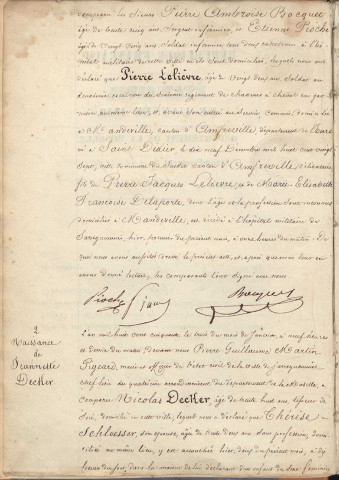 comparu les Sieurs Pierre Ambroise Bocquet
âgé de trente cinq ans, Sergent infirmier, et Etienne Pioche
âgé de vingt cinq ans, Soldat infirmier, tous deux à l'hô-
pital militaire de cette ville où ils sont domiciliés, lesquels nous ont
déclaré que Pierre Lelièvre, âgé de vingt cinq ans, Soldat au
escadron du sixième régiment de chasseurs à cheval en gar-
et, avant son entrée au Service,
à Mandeville, canton d'Amfreville, département de l'Eure
né à Saint Didier le dix neuf Décembre mil huit cent vingt
canton d'Amfreville
fils de Pierre Jacques Lelièvre, et de Marie Elisabeth
Françoise Delaporte, dont l'âge et la profession sont inconnus
domiciliés à Mandeville, est décédé à l'hôpital militaire de
Sarreguemines, hier, premier du présent mois, à onze heures du matin. De
quoi nous avons dressé le présent acte, et, après que nous leur en
avons donné lecture, les comparants l'ont signé avec nous
Pioche Bocquet
2
Naissance
de
Jeannette
Decker
L'an mil huit cent cinquante, le trois du mois de Janvier, à neuf heures
et demie du matin Devant nous Pierre Guillaume Martin
maire et officier de l'état civil de la ville de Sarreguemines
chef lieu du quatrième arrondissement du département de la Moselle, a
comparu Nicolas Decker, âgé de trente huit ans,
domicilié en cette ville, lequel nous a déclaré que Thérèse
Schloesser, son épouse, âgée de trente deux ans, sans profession, domi-
ciliée au même lieu, y est accouchée hier, deux du présent mois, à dix
heures du soir, dans la maison de lui déclarant d'un enfant du sexe féminin